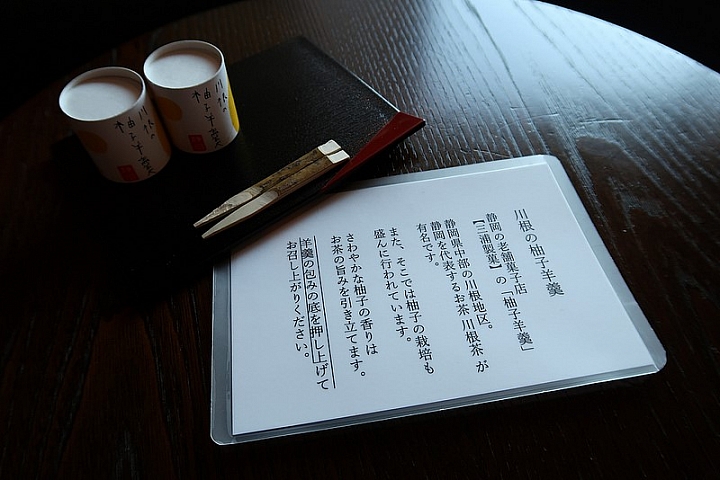 川根の柚子羊羹
川根の柚子羊羹
川根の柚子羊羹
静岡の老舗菓子店
【三浦製菓】の「柚子羊羹」
静岡県中部の川根地区。
静岡を代表するお茶 川根茶 が
有名です。
また、そこでは柚子の栽培も
盛んに行われています。
さわやかな柚子の香りは
お茶の旨みを引き立てます。
羊羹の包みの底を押し上げて
お召し上がりください。